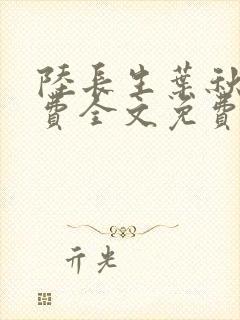 陸長生葉秋
費全文免費
亓光